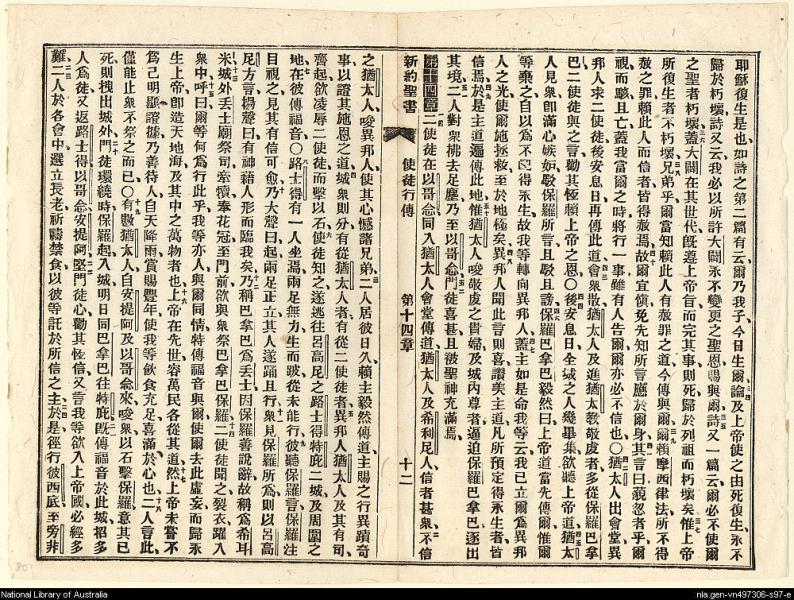 耶穌復生是也如詩之第二篇有云爾乃我子今日生爾論及上帝使之由死復生永不
歸於朽壞詩又云我必以所許大闢永不變更之聖恩賜與爾詩又一篇云爾必不使爾
之聖者朽壞蓋大闢在其世代旣遵上帝旨而完其事則死歸於列祖而朽壞矣惟上帝
所復生者不朽壞兄弟乎爾當知賴此人有赦罪之道今傳與爾爾賴摩西律法所不得
赦之罪賴此人而信者皆得赦焉故爾宜愼免先知所言應於爾身其言曰藐忽者乎爾
視而駭且亡蓋我當爾之時將行一事雖有人告爾爾亦必不信也○猶太人出會堂異
邦人求二使徒後安息日再傳此道會衆散猶太人及進猶太敎敬虔者多從保羅巴拿
巴二使徒與之言勸其恆賴上帝之恩○後安息日全城之人幾畢集欲聽上帝道猶太
人見衆卽滿心嫉妬駁保羅所言且駁且謗保羅巴拿巴毅然曰上帝道當先傳爾惟爾
等棄之自以爲不得永生故我等轉向異邦人蓋主如是命我等云我已立爾爲異邦
人之光使爾施拯救至於地極矣異邦人聞此言則喜讚美主道凡所預定得永生者皆
信焉於是主道遍傳此地惟猶太人唆敬虔之貴婦及城內尊者逼迫保羅巴拿巴逐出
其境二人對衆拂去足塵乃至以哥念門徒喜甚且被聖神充滿焉
第十四篇二使徒在以哥念同入猶太人會堂傳道猶太人及希利尼人信者甚衆不信
新約聖書 使徒行傳 第十四章 十二
之猶太人唆異邦人使其心憾諸兄弟二人居彼日久賴主毅然傳道主賜之行異蹟奇
事以證其施恩之道城衆則分有從猶太人者有從二使徒者異邦人猶太人及其有司
齊起欲凌辱二使徒而擊以石使徒知之遂逃往呂高尼之路士得特庇二城及周圍之
地在彼傳福音○路士得有一人坐焉兩足無力生而跛從未能行彼聽保羅言保羅注
目視之見其有信可愈乃大聲曰起兩足正立其人遂踊且行衆見保羅所爲則以呂高
尼方言揚聲曰有神藉人形而臨我矣乃稱巴拿巴爲丟士因保羅善說辭故稱爲希耳
米城外丟士廟祭司牽犢奉花冠至門前欲與衆祭巴拿巴保羅二使徒聞之裂衣躍入
衆中呼曰爾等何爲行此乎我等亦人與爾同情特傳福音與爾使爾去此虛妄而歸永
生上帝卽造天地海及其中之萬物者也上帝在先世容萬民各從其道然上帝未嘗不
爲己明顯證據乃善待人自天降雨賞賜豐年使我等飲食充足喜滿於心也二人言此
僅能止衆不祭之而已○有數猶太人自安提阿及以哥念來唆衆以石擊保羅意其已
死則拽出城外門徒環繞時保羅起入城明日同巴拿巴往特庇旣傳福音於此城招多
人爲徒又返路士得以哥念安提阿堅門徒心勸其恆信又言我等欲入上帝國必經多
難二人於各會中選立長老祈禱禁食以彼等託於所信之主於是徑行彼西底至旁非
National Library of Australia
nla.gen-vn497306-s97-e